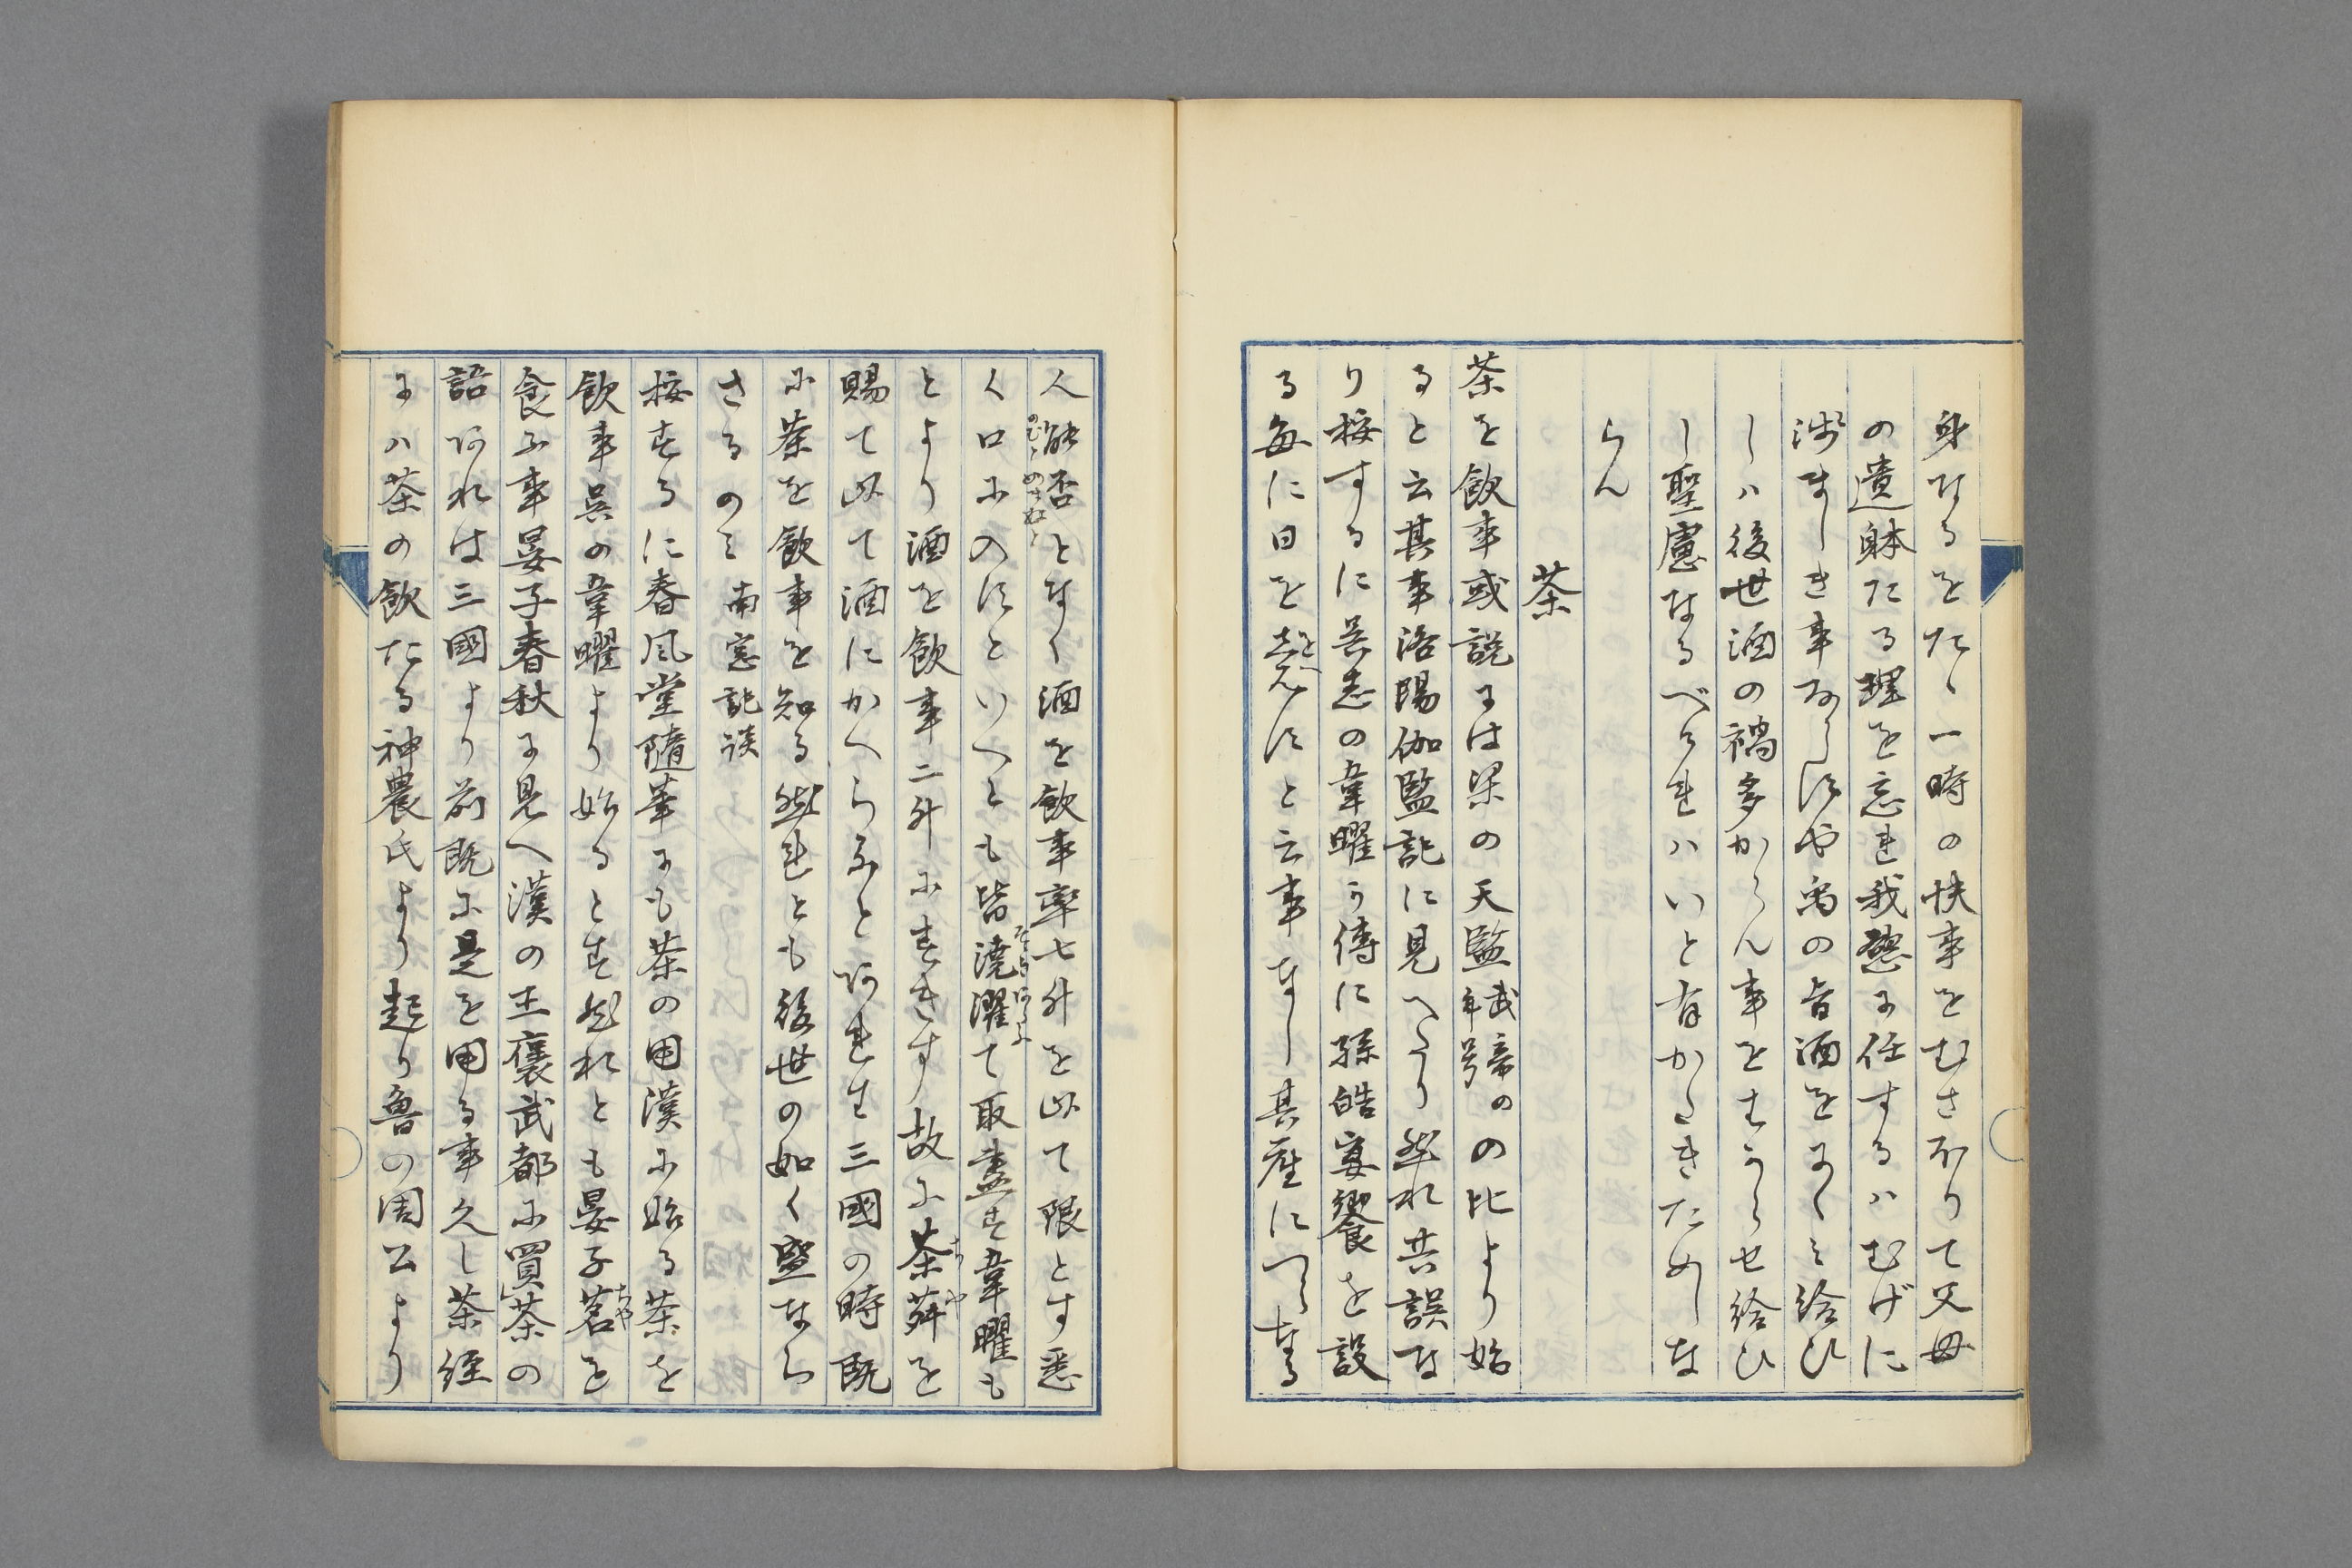 身なるをたゝ一時の快事をむさほりて父母
の遺躰たる理を忘れ我慾に任するハむげに
浅ましき事ならすや禹の旨酒をにくミ給ひ
しハ後世酒の禍多からん事をはからせ給ひ
し聖慮なるべけれハいと有かたきためしな
らん
茶
茶を飲事或説には梁の天監武帝の年号の比より始
ると云其事洛陽伽藍記に見へたり然れ共誤な
り按するに呉志の韋曜か傳に孫皓宴饗を設
る毎に日を竟へすと云事なし其座につらなる
人能否となく酒を飲事率七升を以て限とす悉
く口に入すといへとも皆澆灌て取盡す韋曜も
とより酒を飲事二升にすきす故に茶荈を
賜て以て酒にかへらると あれは三國の時既
に茶を飲事を知る然れとも後世の如く盛なら
さるのミ 南窓記談
按するに春風堂随筆にも茶の用漢に始る茶を
飲事呉の韋曜より始ると す然れとも晏子茗を
食ふ事晏子春秋に見へ漢の王褒武都に買茶の
語あれは三國より前既に是を用る事久し茶経
にハ茶の飲たる神農氏より起り魯の周公より